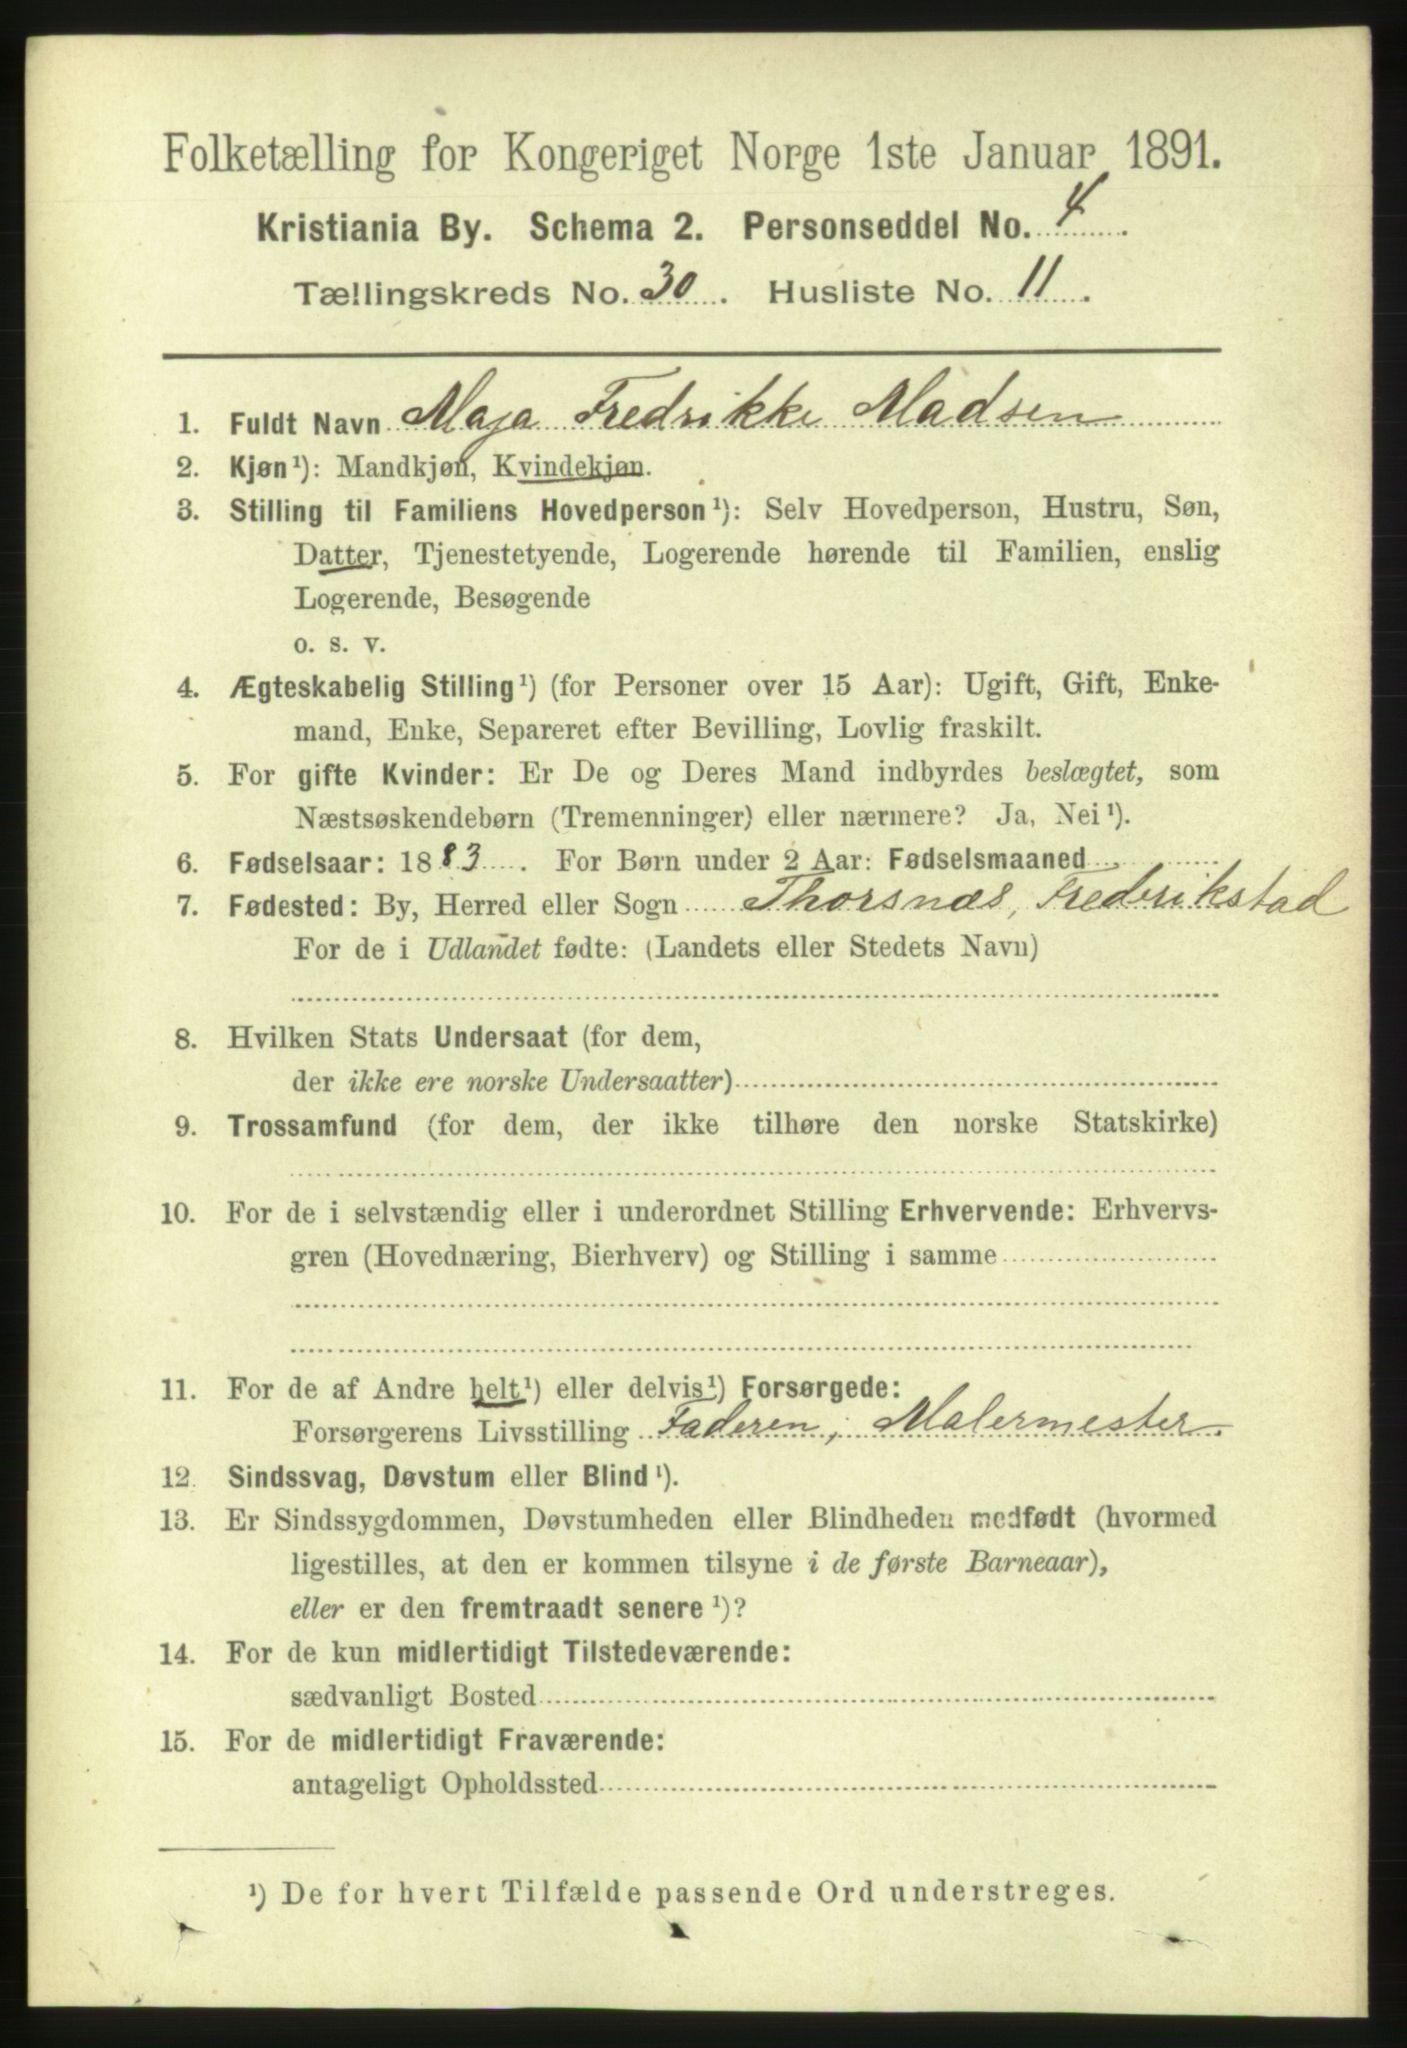 Folketælling for Kongeriget Norge 1ste Januar 1891.
Kristiania By. Schema 2. Personseddel No. 4.
Tællingskreds No. 30. Husliste No. 11.
1. Fuldt Navn Maja Fredrikke Madsen
2. Kjøn¹): Mandkjøn, Kvindekjøn.
3. Stilling til Familiens Hovedperson¹): Selv Hovedperson, Hustru, Søn,
Datter, Tjenestetyende, Logerende hørende til Familien, enslig
Logerende, Besøgende
o. s. v.
4. Ægteskabelig Stilling¹) (for Personer over 15 Aar): Ugift, Gift, Enke-
mand, Enke, Separeret efter Bevilling, Lovlig fraskilt.
5. For gifte Kvinder: Er De og Deres Mand indbyrdes beslægtet, som
Næstsøskendebørn (Tremenninger) eller nærmere? Ja, Nei¹).
6. Fødselsaar: 1883. For Børn under 2 Aar: Fødselsmaaned
7. Fødested: By, Herred eller Sogn Thorsnæs, Frederikstad
For de i Udlandet fødte: (Landets eller Stedets Navn)
8. Hvilken Stats Undersaat (for dem,
der ikke ere norske Undersaatter)
9. Trossamfund (for dem, der ikke tilhøre den norske Statskirke)
10. For de i selvstændig eller i underordnet Stilling Erhvervende: Erhvervs-
gren (Hovednæring, Bierhverv) og Stilling i samme
11. For de af Andre helt¹) eller delvis¹) Forsørgede:
Forsørgerens Livsstilling Faderen, Malermester.
12. Sindssvag, Døvstum eller Blind¹).
13. Er Sindssygdommen, Døvstumheden eller Blindheden medfødt (hvormed
ligestilles, at den er kommen tilsyne i de første Barneaar),
eller er den fremtraadt senere¹)?
14. For de kun midlertidigt Tilstedeværende:
sædvanligt Bosted
15. For de midlertidigt Fraværende:
antageligt Opholdssted
¹) De for hvert Tilfælde passende Ord understreges.